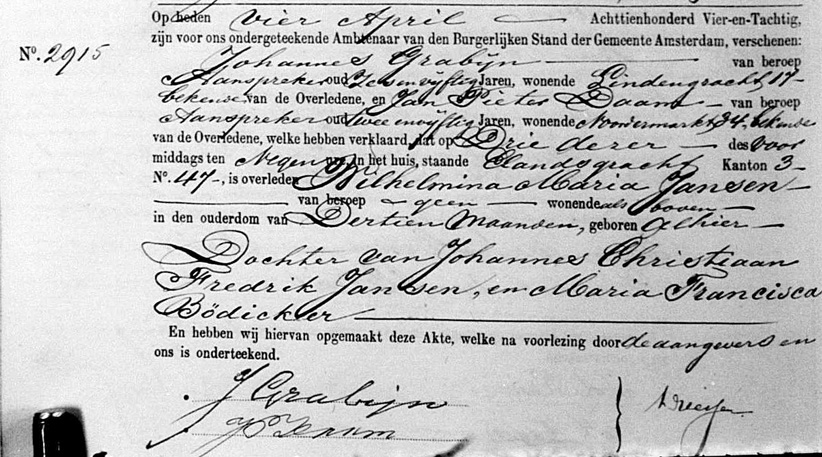 Op heden vier April Achttienhonderd Vier-en-Tachtig,
zijn voor ons ondergeteekende Ambtenaar van den Burgerlijken Stand der Gemeente Amsterdam, verschenen:
No. 2915
Johannes Grabijn van beroep
Aanspreker oud Zesenvyftig Jaren, wonende Lindengracht 17
bekende van de Overledene, en Jan Pieter Daam van beroep
Aanspreker oud twee envyftig Jaren, wonende Noordermarkt 24, bekende
van de Overledene, welke hebben verklaard, dat op Drie dezer des voor
middags ten Negen ure, in het huis, staande Elandsgracht Kanton 3
No. 47, is overleden Wilhelmina Maria Jansen
van beroep geen wonende als boven
in den ouderdom van Dertien Maanden, geboren alhier
Dochter van Johannes Christiaan
Fredrik Jansen, en Maria Francisca
Bödicker
En hebben wij hiervan opgemaakt deze Akte, welke na voorlezing door de aangevers en
ons is onderteekend.
J Grabijn